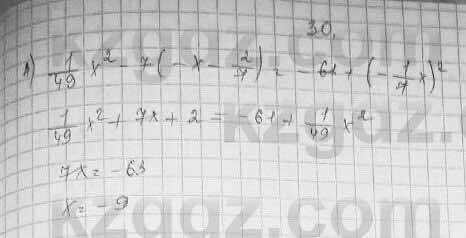 30.
А) 1/49 x² - 7(-x - 2/7) = -61 + (-1/7 x)²
1/49 x² + 7x + 2 = -61 + 1/49 x²
7x = -63
x = -9
kzgdz.com